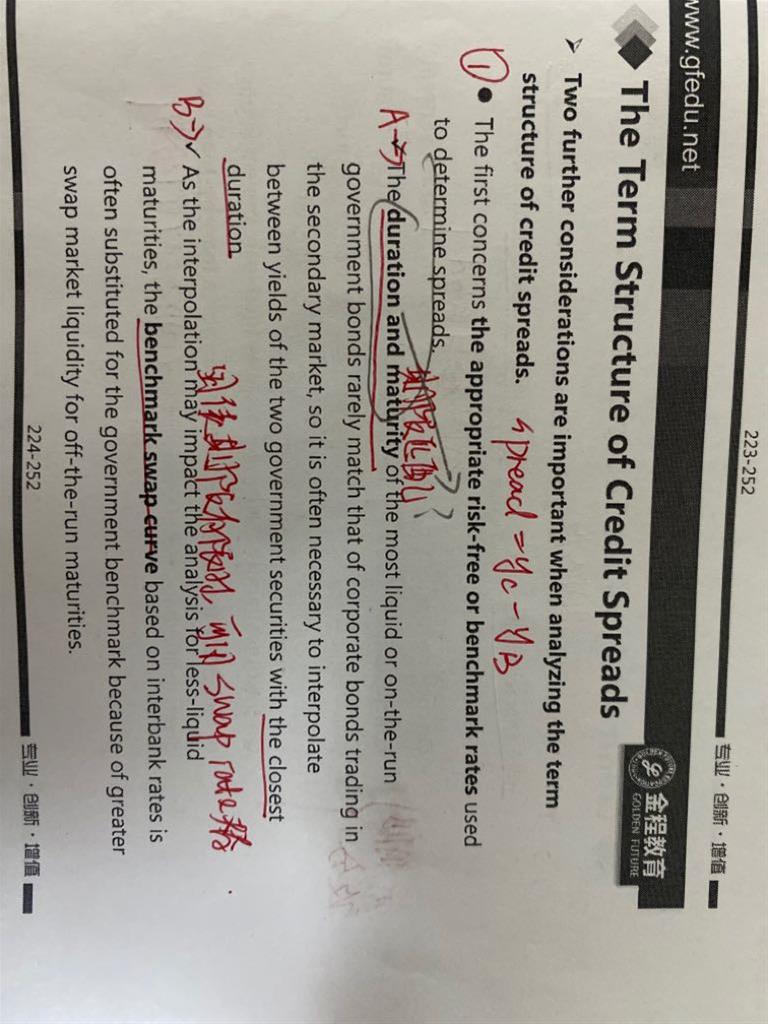 223-252
专业·创新·增值
www.gfedu.net
金程教育
GOLDEN FUTURE
The Term Structure of Credit Spreads
➢ Two further considerations are important when analyzing the term
structure of credit spreads.
spread = yc - yB
① ● The first concerns the appropriate risk-free or benchmark rates used
to determine spreads.
??
A→ ✓ The duration and maturity of the most liquid or on-the-run
government bonds rarely match that of corporate bonds trading in
the secondary market, so it is often necessary to interpolate
between yields of the two government securities with the closest
duration
可用 swap rate
B→ ✓ As the interpolation may impact the analysis for less-liquid
maturities, the benchmark swap curve based on interbank rates is
often substituted for the government benchmark because of greater
swap market liquidity for off-the-run maturities.
224-252
专业·创新·增值